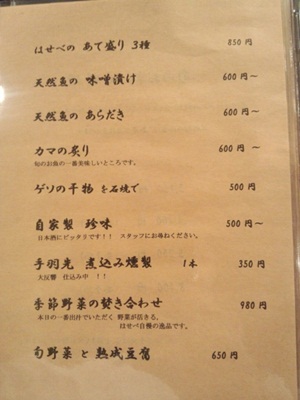 はせべの あて盛り 3種 850円
天然魚の 味噌漬け 600円〜
天然魚の あらだき 600円〜
カマの炙り 600円 〜
旬のお魚の一番美味しいところです。
ゲソの干物 を石焼で 500円
自家製 珍味 500円〜
日本酒にピッタリです！！ スタッフにお尋ねください。
手羽先 煮込み燻製 1本 350円
大反響 仕込み中 ！！
季節野菜の焚き合わせ 980円
本日の一番出汁でいただく 野菜が活きる、
はせべ自慢の逸品です。
旬野菜 と 熟成豆腐 650円